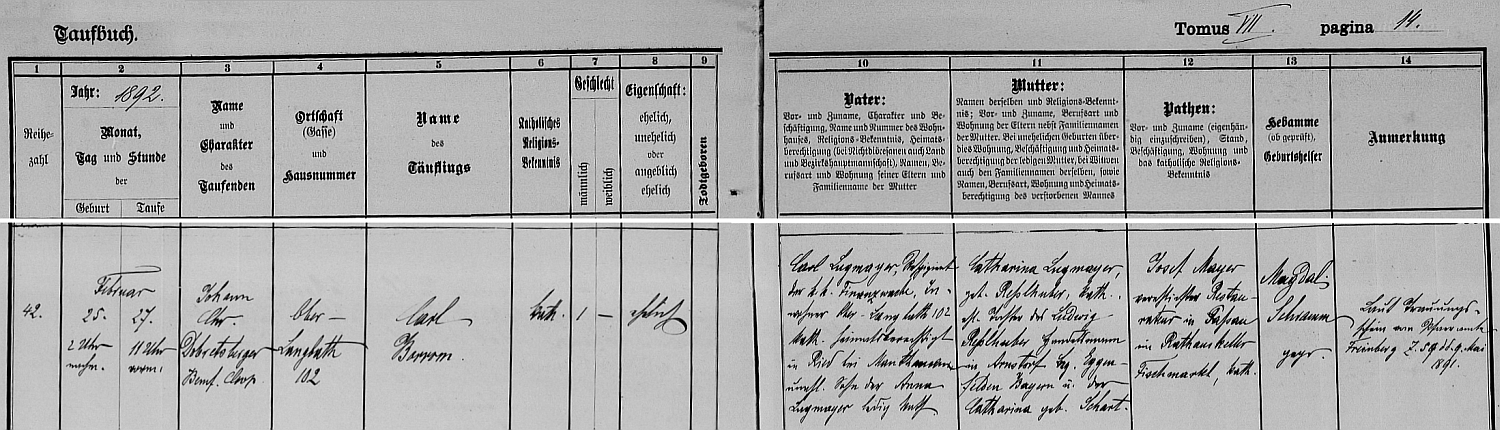 Taufbuch.
Tomus VII. pagina 14.
1 2 3 4 5 6 7 8 9 10 11 12 13 14
Reihe-
zahl
Jahr: 1892.
Monat,
Tag und Stunde
der
Geburt Taufe
Name
und
Charakter
des
Taufenden
Ortschaft
(Gasse)
und
Hausnummer
Name
des
Täuflings
Katholisches
Religions-
Bekenntnis
Geschlecht
männlich
weiblich
Eigenschaft:
ehelich,
unehelich
oder
angeblich
ehelich
Todtgeboren
Vater:
Vor- und Zuname, Charakter und Be-
schäftigung, Name und Nummer des Wohn-
hauses, Religions-Bekenntnis, Heimats-
berechtigung (bei Nichtdiöcesanen auch Land
und Bezirkshauptmannschaft), Namen, Be-
rufsart und Wohnung seiner Eltern und
Familienname der Mutter
Mutter:
Namen derselben und Religions-Bekennt-
nis; Vor- und Zuname, Berufsart und
Wohnung der Eltern nebst Familiennamen
der Mutter. Bei unehelichen Geburten über-
dies Wohnung, Beschäftigung und Heimats-
berechtigung der ledigen Mutter, bei Witwen
auch den Familiennamen derselben, sowie
Namen, Berufsart, Wohnung und Heimats-
berechtigung des verstorbenen Mannes
Pathen:
Vor- und Zuname (eigenhän-
dig einzuschreiben), Stand,
Beschäftigung, Wohnung und
das katholische Religions-
Bekenntnis
Hebamme
(ob geprüft),
Geburtshelfer
Anmerkung
42.
Februar
25. 27.
2 Uhr 11 Uhr
nachm. vorm.
Johann
Ev.
Dobretsberger
Benf. Coop.
Ober-
Langbath
102
Carl
Borrom.
kath.
1 —
ehelich
Carl Lugmayer,
der k. k. Finanzwache, In-
wohner Ober-Langbath 102
kath. heimatsberechtigt
in Ried bei Mauthausen
unehl. Sohn der Anna
Lugmayer ledig kath
Catharina Lugmayer,
geb. Reßlhuber, kath.,
el. Tochter des Ludwig
Reßlhuber Handelsmann
in Arnstorf Bez. Eggen-
felden Bayern u. der
Catharina geb. Schart.
Josef Mayer
verehlichter Restau-
rateur in Passau
im Rathauskeller
Fischmarkt, kath.
Magdal.
Schramm
gepr.
Laut Trauungs-
schein vom Pfarramte
Freinberg Z. 59 dd. 9. Mai
1891.